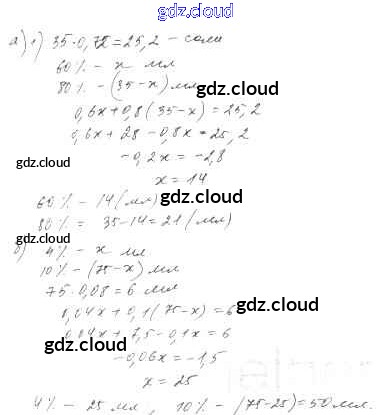 gdz.cloud
а) 1) 35·0,72=25,2 – соли
gdz.cloud
60% – x мл
80% – (35–x) мл
gdz.cloud
0,6x+0,8(35–x)=25,2
0,6x+28–0,8x=25,2
–0,2x=–2,8
x=14
gdz.cloud
60% – 14 (мл)
gdz.cloud
80% = 35–14=21 (мл)
б) 4% – x мл
gdz.cloud
10% – (75–x) мл
75·0,08=6 мл
gdz.cloud
0,04x+0,1(75–x)=6
0,04x+7,5–0,1x=6
gdz.cloud
–0,06x=–1,5
x=25
gdz.cloud
4% – 25 мл, 10% – (75–25)=50 мл.